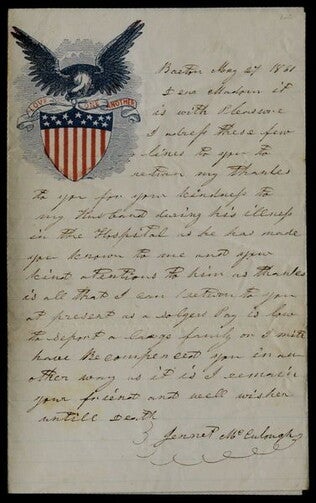 LOVE ONE ANOTHER
Boston May 27 1861
Dear Madam it
is with Pleasure
I adress these few
lines to you to
return my thanks
to you for your kindness to
my husband during his illness
in the Hospital as he has made
you known to me and your
kind atentions to him as thanks
is all that I can return to you
at present as a solgers Pay is low
to seport a large family or I might
have Recompenced you in an
other way as it is I remain
your friend and well wisher
untill Death
Jennet McCulough